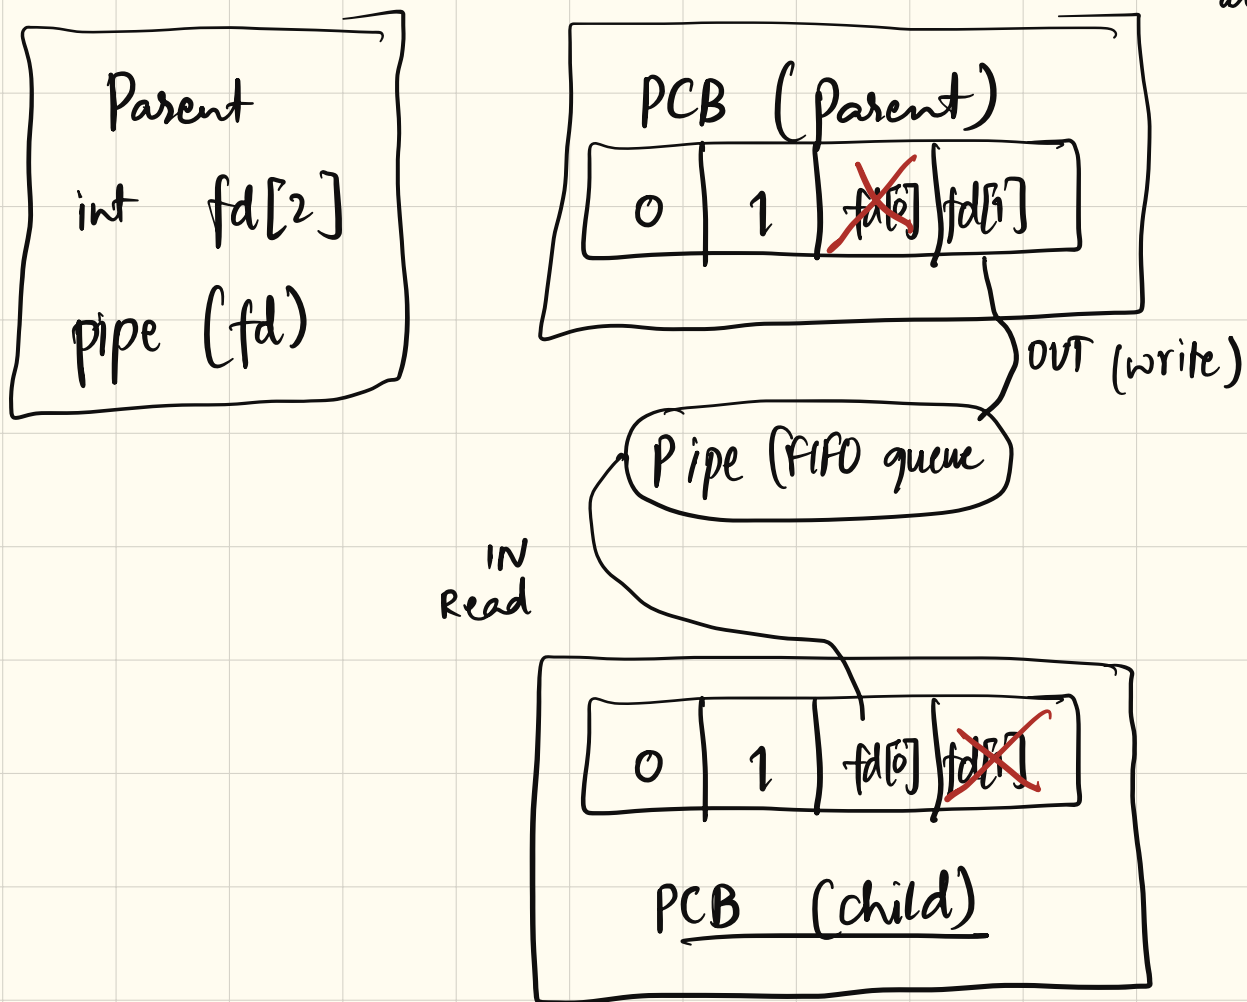 Parent
int fd[2]
pipe (fd)
PCB (Parent)
0 1 fd[0] fd[1]
OUT (write)
Pipe (FIFO queue
IN
Read
0 1 fd[0] fd[1]
PCB (child)